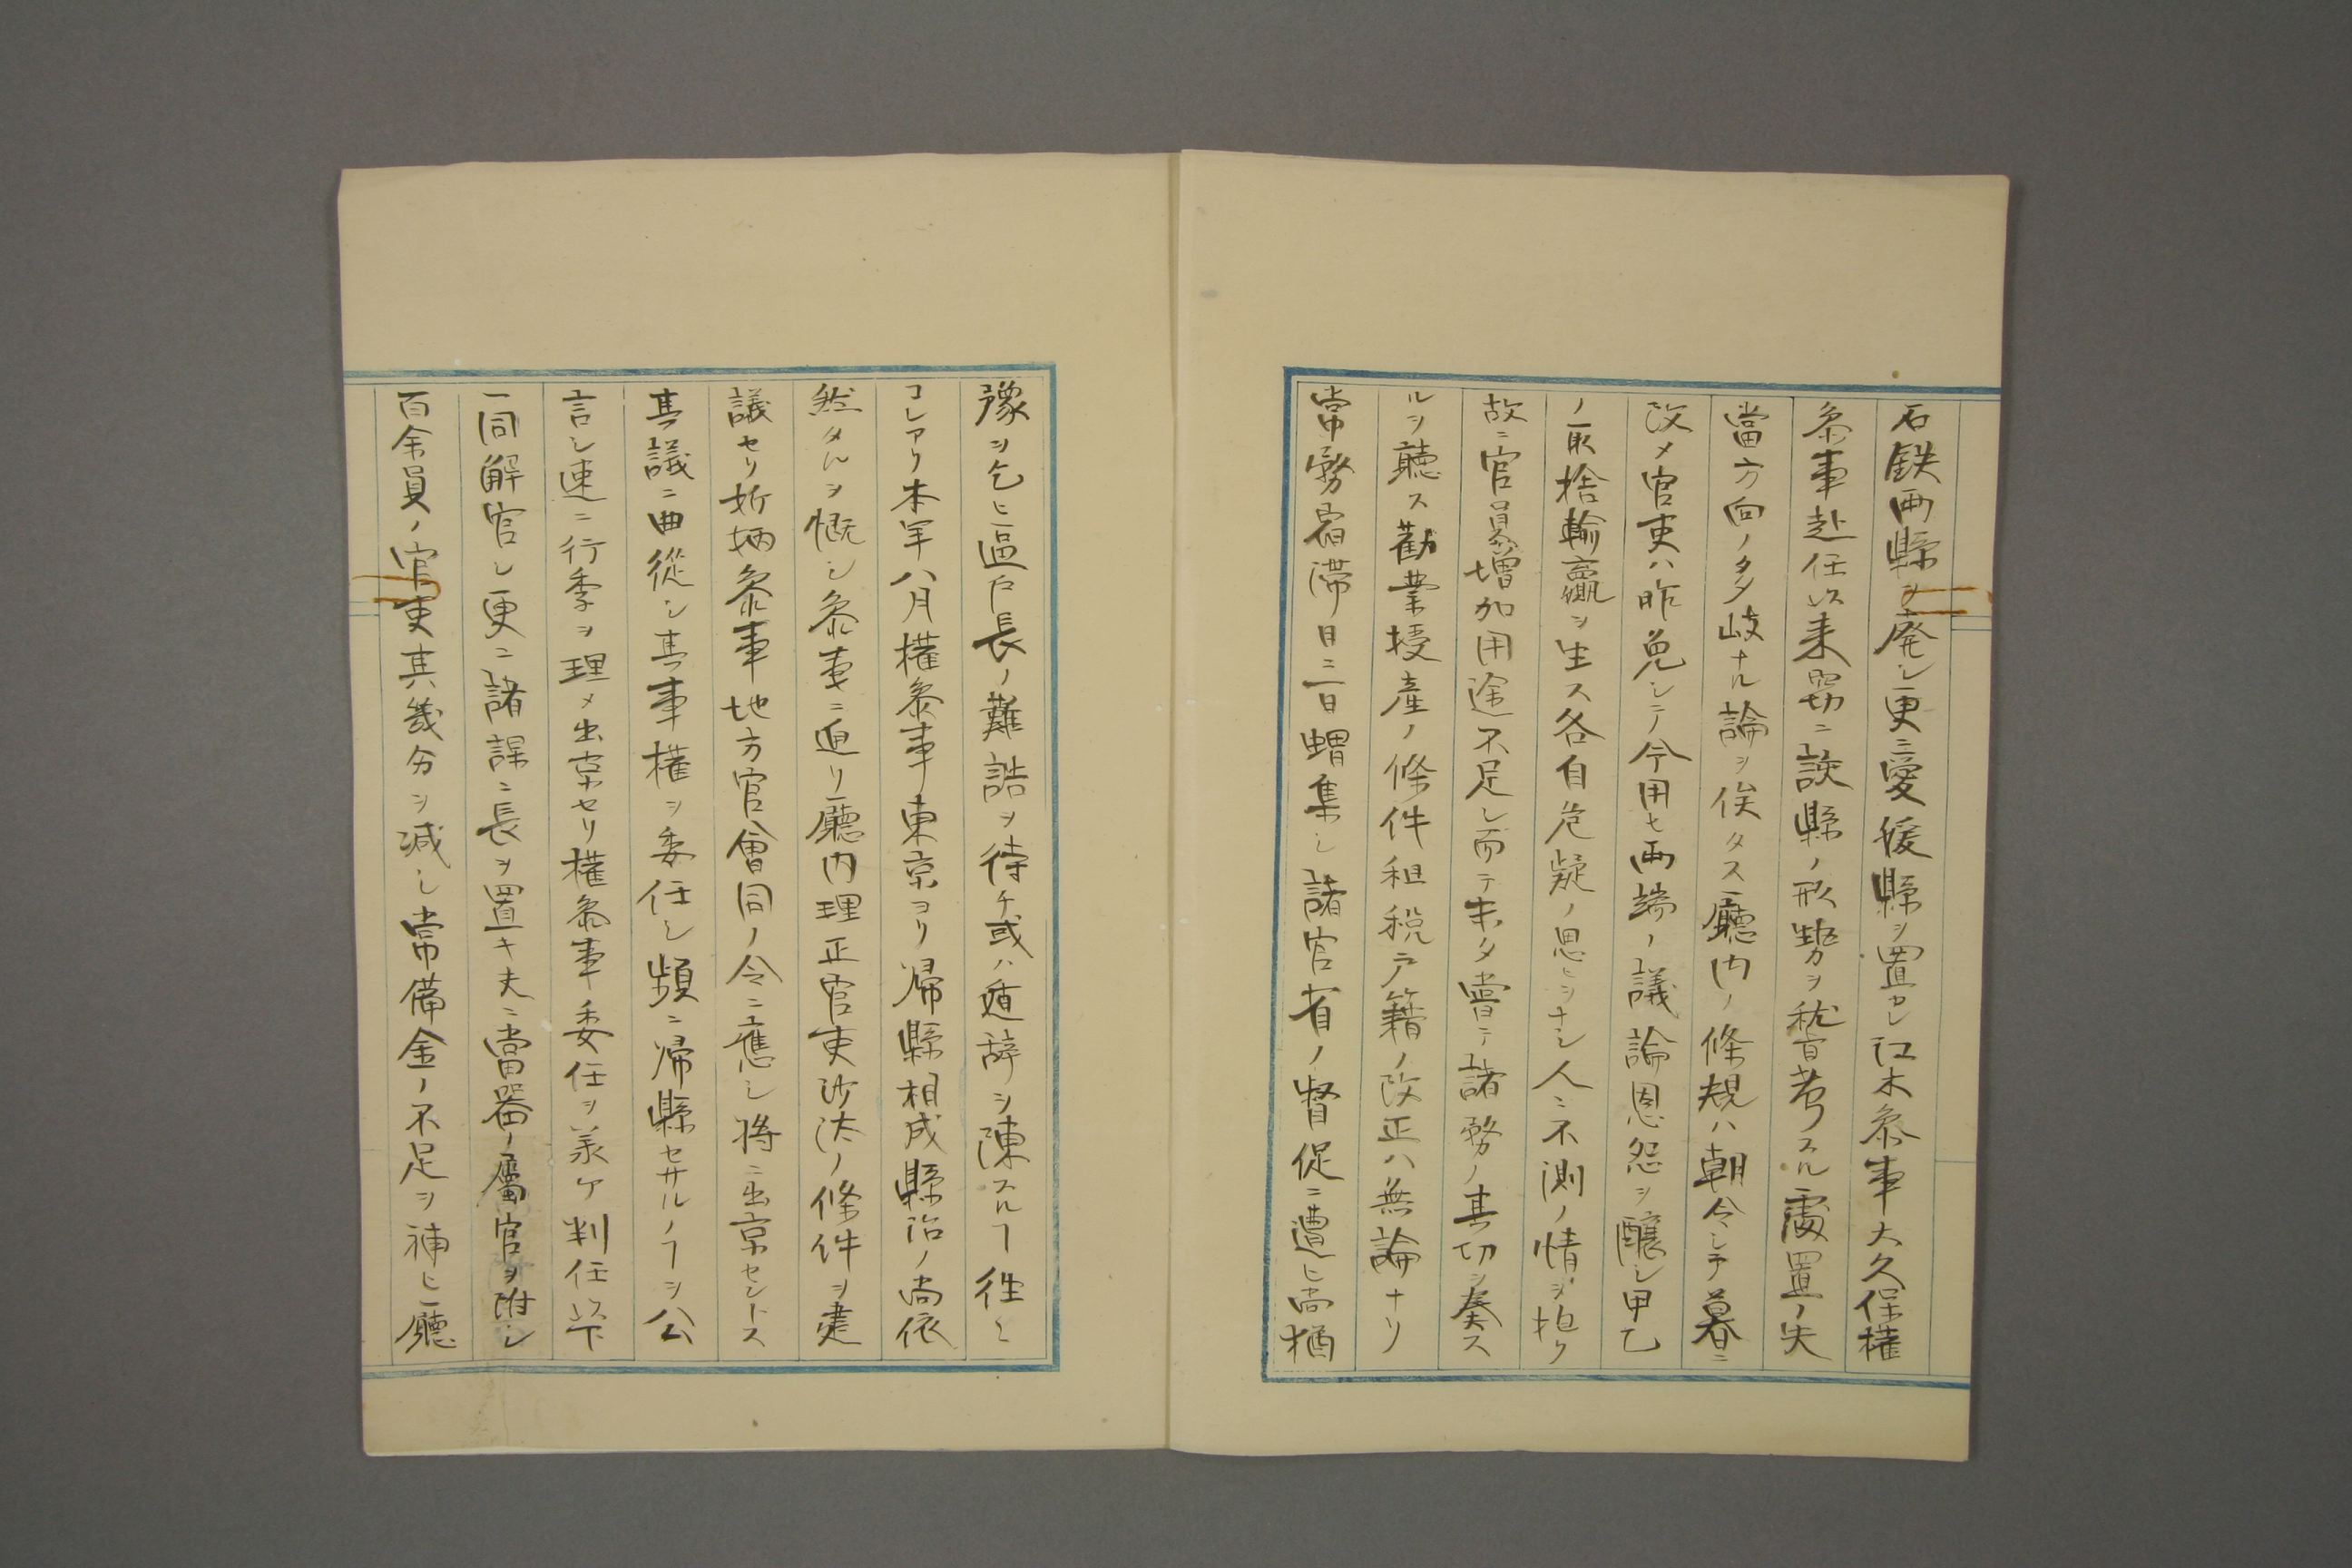 石鉄両縣ヲ廃シ更ニ愛媛縣ヲ置カレ江木叅事大久保權
叅事赴任以来窃ニ該縣ノ形勢ヲ稽考スル處置ノ失
當方向ノ多岐ナル論ヲ俟タス廳内ノ條規ハ朝令シテ暮ニ
改メ官吏ハ昨免シテ今用セ両端ノ議論恩怨ヲ釀シ甲乙
ノ取捨輸贏ヲ生ス各自危疑ノ思ヒヲナシ人ニ不測ノ情ヲ抱ク
故ニ官員増加用途不足シ而テ未タ嘗テ諸務ノ其功ヲ奏ス
ルヲ聽ス勸業授産ノ條件租税戸籍ノ改正ハ無論ナリ
常務宿滞日ニ一日蝟集シ諸官省ノ督促ニ遭ヒ尚猶
豫ヲ乞ヒ區戸長ノ難詰ヲ待チ或ハ遁辞ヲ陳スルヿ往々
コレアリ本年八月權叅事東京ヨリ帰縣相成縣治ノ尚依
然タルヲ慨シ叅事ニ迫リ廳内理正官吏沙汰ノ條件ヲ建
議セリ折柄叅事地方官會同ノ令ニ應シ将ニ出京セントス
其議ニ曲從シ其事權ヲ委任シ頻ニ帰縣セサルノヿヲ公
言シ速ニ行李ヲ理メ出京セリ權叅事委任ヲ羕ケ判任以下
一同解官シ更ニ諸課ニ長ヲ置キ夫ニ當器ノ屬官ヲ附シ
百余員ノ官吏其幾分ヲ减シ常備金ノ不足ヲ補ヒ廳